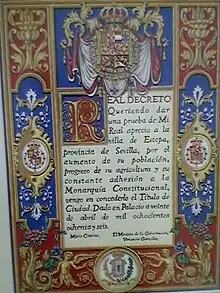 REAL DECRETO
Queriendo dar
una prueba de Mi
Real aprecio a la
villa de Estepa,
provincia de Sevilla, por el
aumento de su población,
progreso de su agricultura y su
constante adhesión a la
Monarquía Constitucional,
vengo en concederle el Título de
Ciudad. Dado en Palacio a veinte
de abril de mil ochocientos
ochenta y seis.
María Cristina. El Ministro de la Gobernación,
Venancio González